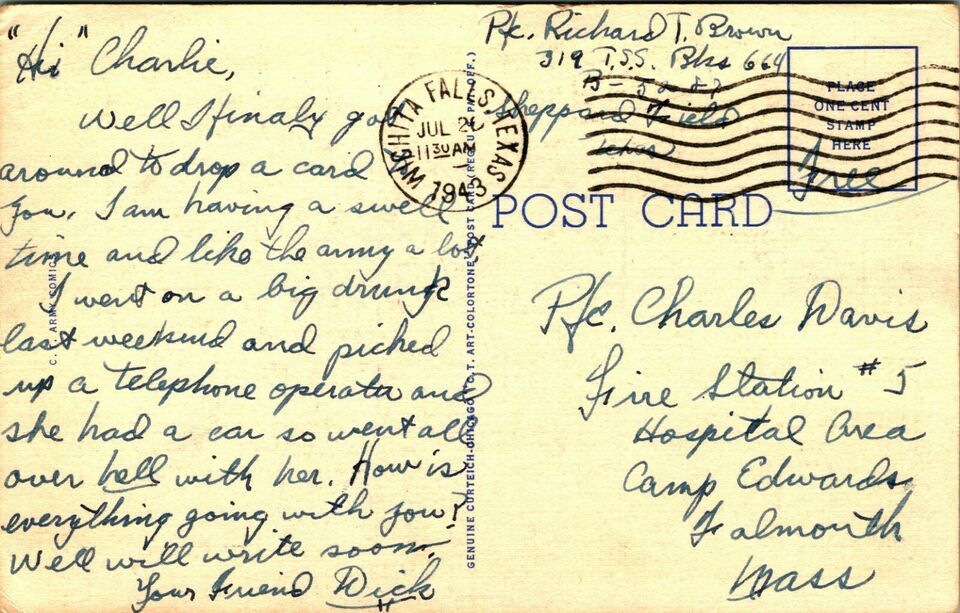 "Hi" Charlie,
Well I finaly got
around to drop a card to
you. I am having a swell
time and like the army a lot
I went on a big drunk
last weekend and picked
up a telephone operator and
she had a car so went all
over hell with her. How is
everything going with you?
Well will write soon.
Your Friend Dick
Pfc. Richard T. Brown
319 T.S.S. Bks 664
Sheppard Field
Texas
WICHITA FALLS, TEXAS
JUL 26
11 30 AM
1943
PLACE
ONE CENT
STAMP
HERE
Free
POST CARD
Pfc. Charles Davis
Fire Station #5
Hospital Area
Camp Edwards
Falmouth
Mass
ARMY COMICS
GENUINE CURTEICH-CHICAGO "C. T. ART-COLORTONE" POST CARD (REG. U.S. PAT. OFF.)